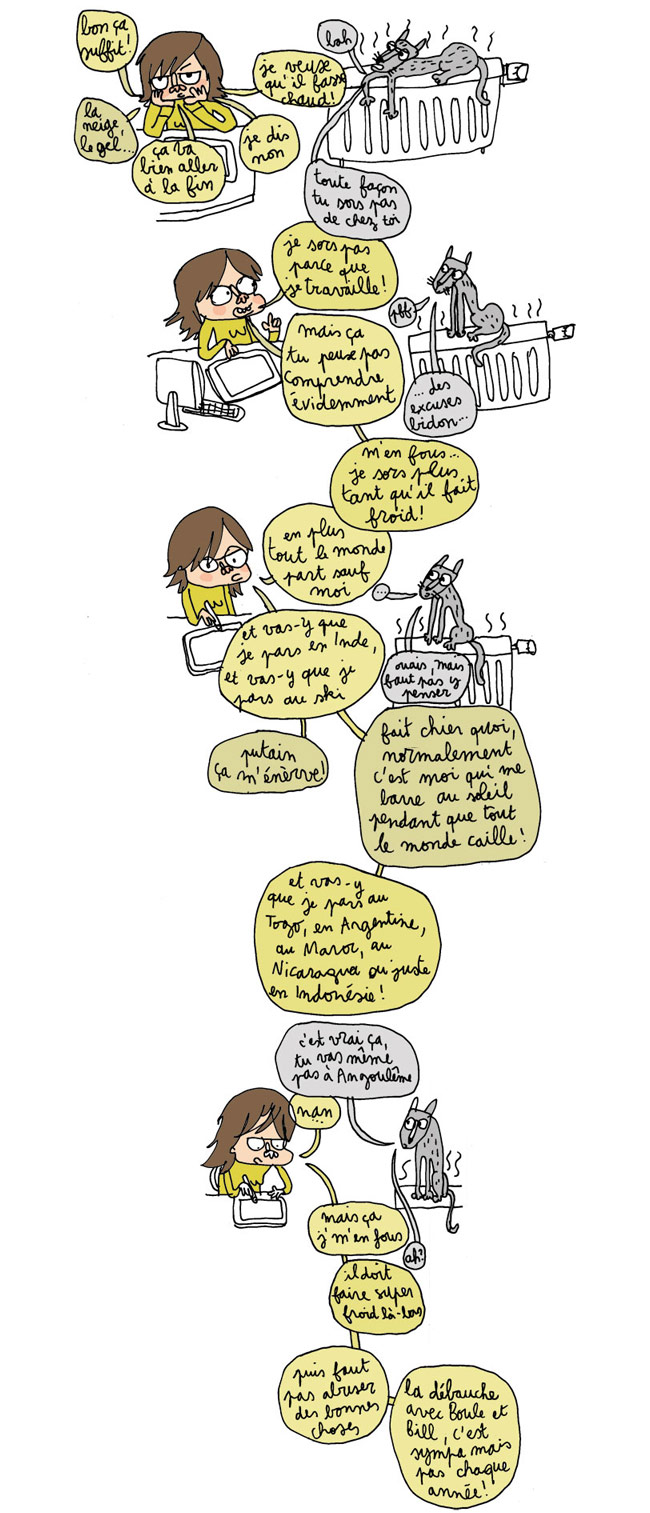 bon ça
suffit!
la
neige,
le gel...
ça va
bien aller
à la fin
je dis
non
je veux
qu'il fasse
chaud!
bah
toute façon
tu sors pas
de chez toi
je sors pas
parce que
je travaille!
mais ça
tu peux pas
comprendre
évidemment
pff
... des
excuses
bidon...
m'en fous...
je sors plus
tant qu'il fait
froid!
en plus
tout le monde
part sauf
moi
...
et vas-y que
je pars en Inde,
et vas-y que je
pars au ski
ouais, mais
faut pas y
penser
putain
ça m'énèrve!
fait chier quoi,
normalement
c'est moi qui me
barre au soleil
pendant que tout
le monde caille!
et vas-y
que je pars au
Togo, en Argentine,
au Maroc, au
Nicaragua ou juste
en Indonésie!
c'est vrai ça,
tu vas même
pas à Angoulême
nan...
mais ça
j'm'en fous
ah?
il doit
faire super
froid là-bas
puis faut
pas abuser
des bonnes
choses
la débauche
avec Boule et
Bill, c'est
sympa mais
pas chaque
année!